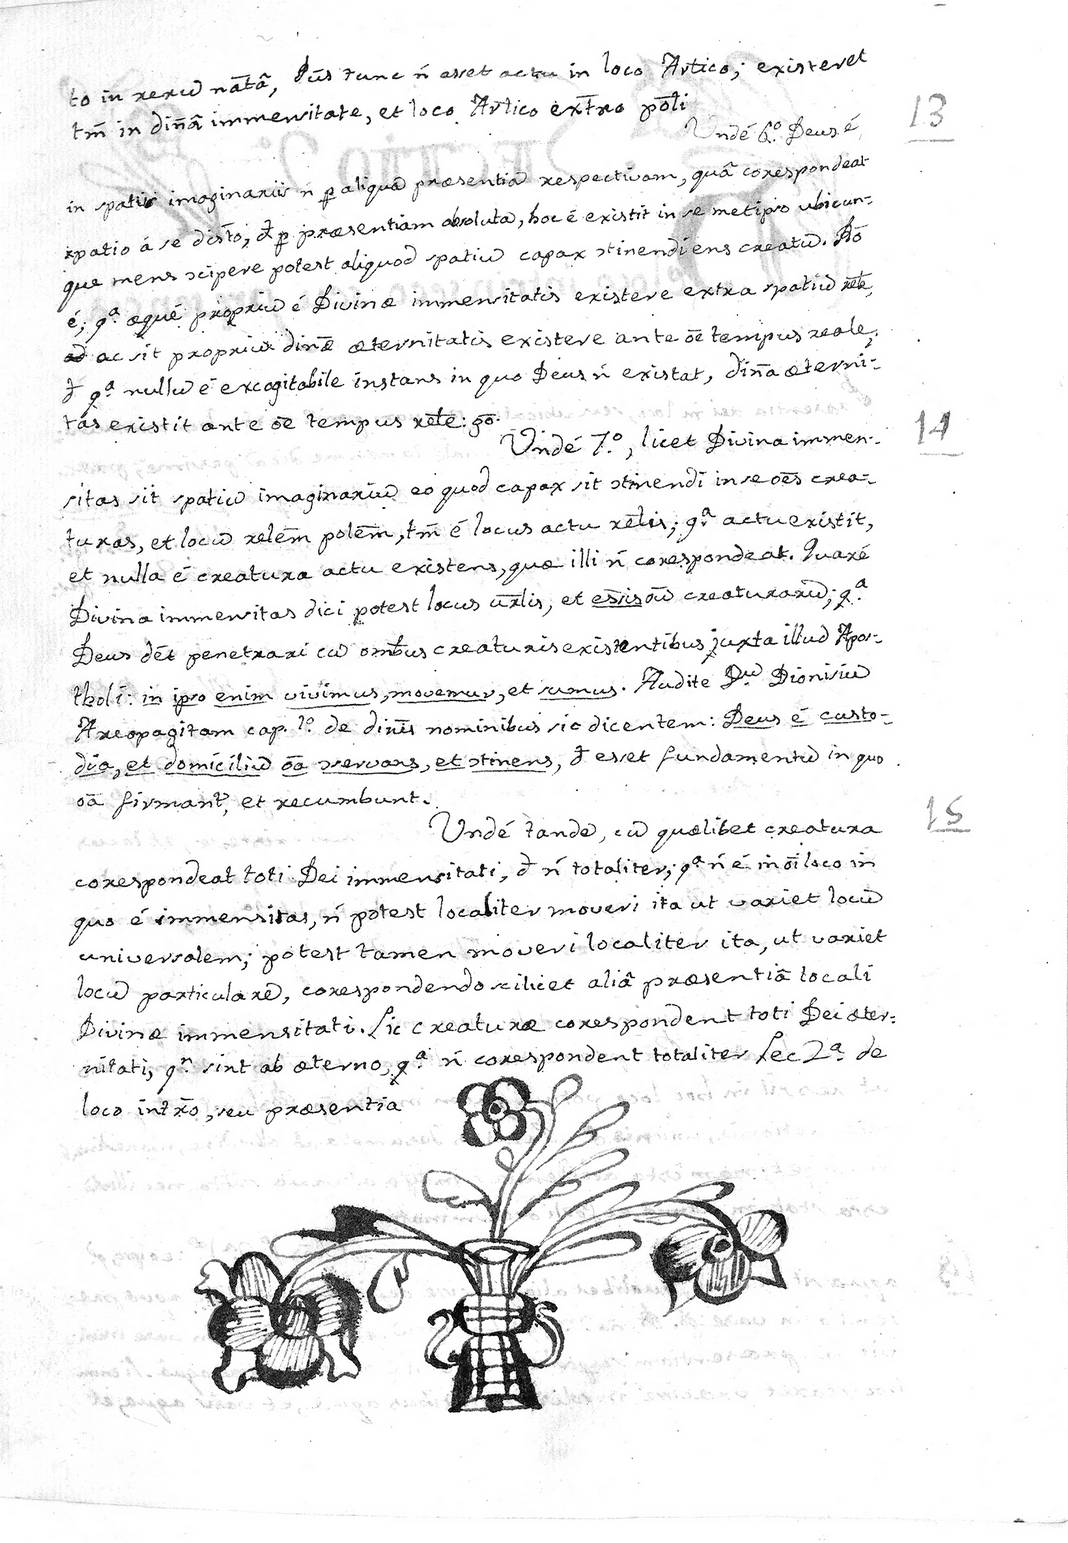 to in rerū nātâ, Dūs tunc n̄ esset actu in loco Artico; existeret
tm̄ in din̄â immensitate, et loco Artico extr̄o pōli
13
Undé 6.º Deus é
in spatiis imaginariis n̄ p aliquā præsentiā respectivam, quâ corespondeat
spatio á se disto, d̄ p præsentiam absoluta, hoc é existit in se metipso ubicun-
que mens ɔcipere potest aliquod spatiū capax ɔtinendi ens creatū. Rō
é; qª æqué propriū é Divinæ immensitatis existere extra spatiū rēle,
ac sit propriū dinæ æternitatis existere ante ōe tempus reale;
d̄ qª nullū é excogitabile instans in quo Deus n̄ existat, din̄a æterni-
tas existit ante ōe tempus rēle: gō.
14
Undé 7.º, licet Divina immen-
sitas sit spatiū imaginariū eo quod capax sit ɔtinendi in se ōes crea-
turas, et locū relēm polēm, tm̄ é locus actu rēlis; qª actu existit,
et nulla é creatura actu existens, quæ illi n̄ corespondeat. Quaré
Divina immensitas dici potest locus ūrlis, et esšis oū creaturarū; qª
Deus dēt penetrari cū omb̄us creaturis existentibus juxta illud Apos-
tholi: in ipso enim vivimus, movemur, et sumus. Audite Dū Dionisiū
Areopagitam cap. 1º de dinīs nominibus sic dicentem: Deus é custo-
dia, et domiciliū oā ɔservans, et ɔtinens, d̄ esset fundamentū in quo
oā firmant̄, et recumbunt.
15
Undé tande, cū quælibet creatura
corespondeat toti Dei immensitati, d̄ n̄ totaliter; qª n̄ é in ōi loco in
quo é immensitas, n̄ potest localiter moveri ita ut variet locū
universalem; potest tamen moveri localiter ita, ut variet
locū particularē, corespondendo scilicet aliâ præsentiâ locali
Divinæ immensitati. Sic creaturæ corespondent toti Dei æter-
nitati, qⁿ sint ab æterno, qª n̄ corespondent totaliter Lec 2ª de
loco intr̄o, seu præsentia